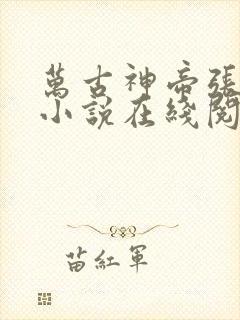 萬古神帝張
小說在綫閱
苗紅軍